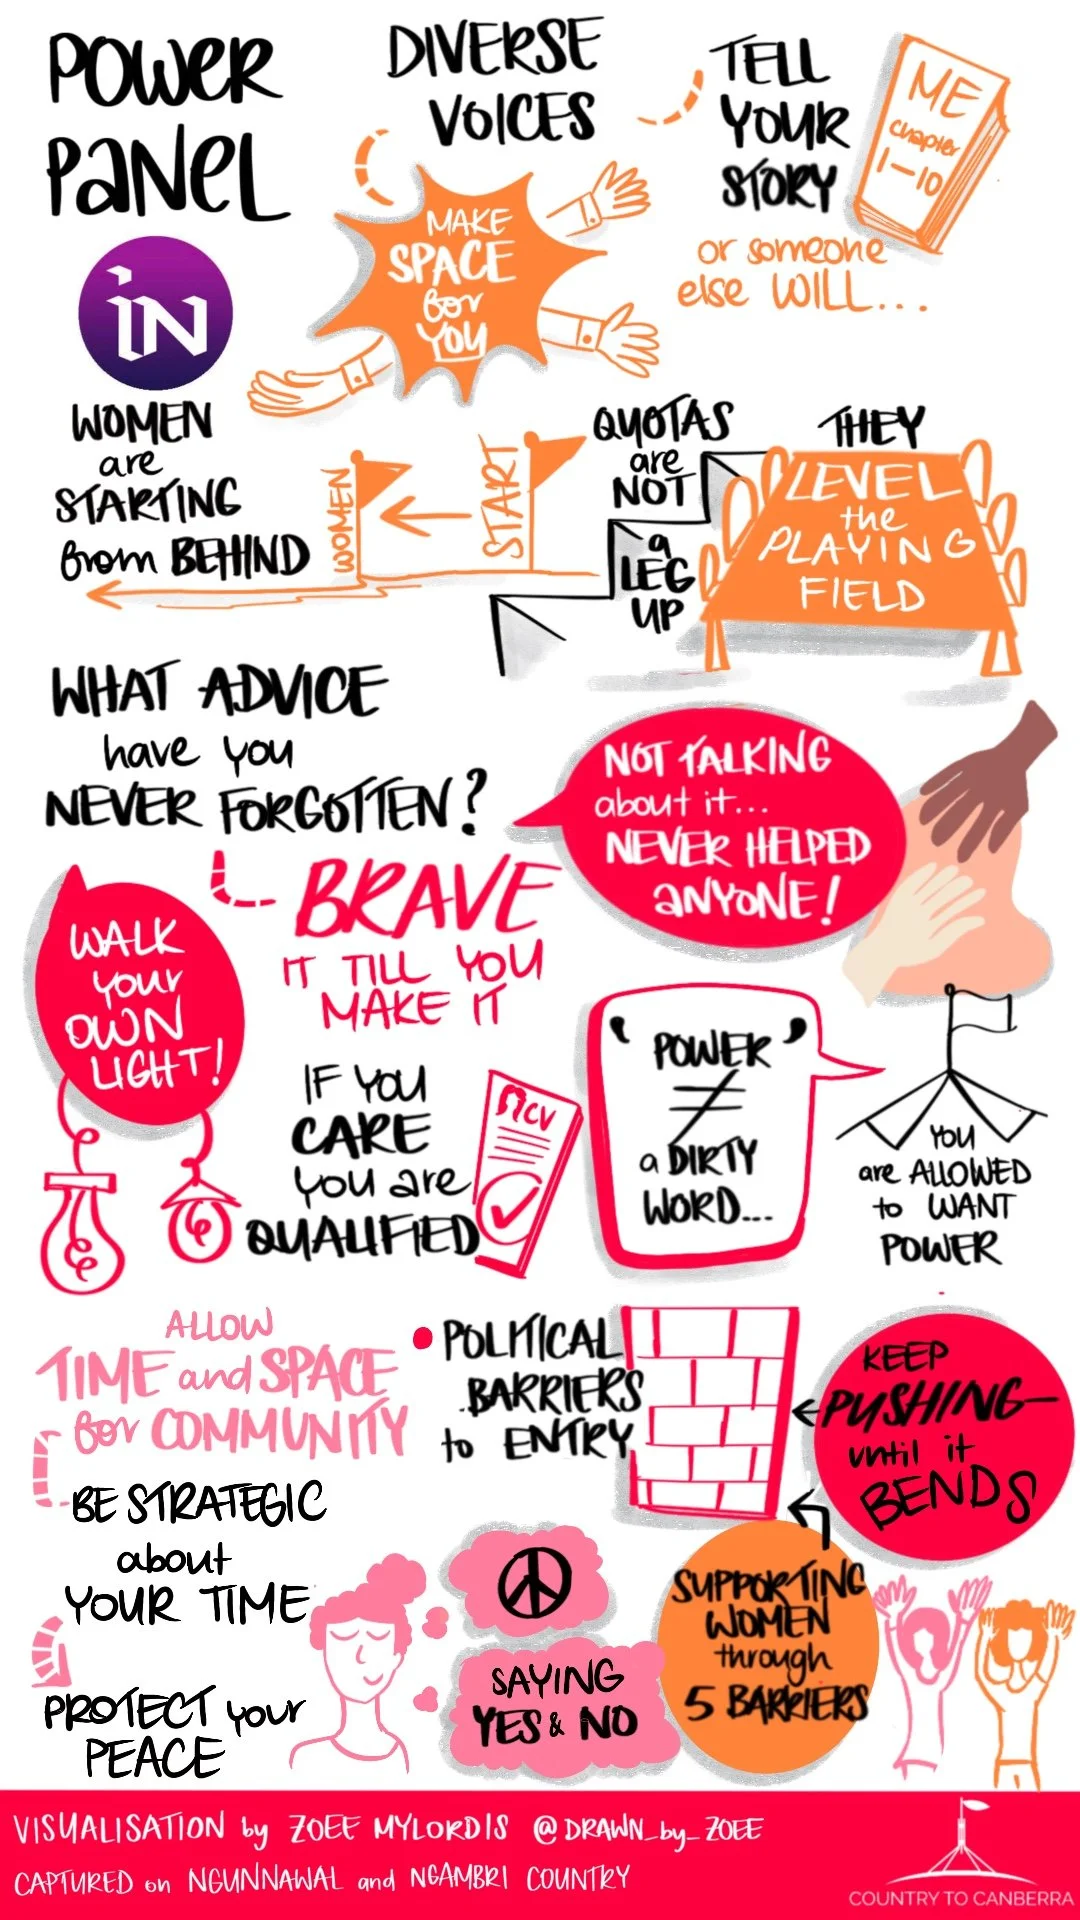 POWER
PANEL
iN
DIVERSE
VOICES
MAKE
SPACE
for
YOU
TELL
YOUR
STORY
ME
chapter
1-10
or someone
else WILL...
WOMEN
are
STARTING
from BEHIND
WOMEN
START
QUOTAS
are
NOT
a
LEG
UP
THEY
LEVEL
the
PLAYING
FIELD
WHAT ADVICE
have you
NEVER FORGOTTEN?
NOT TALKING
about it...
NEVER HELPED
ANYONE!
BRAVE
IT TILL YOU
MAKE IT
WALK
your
OWN
LIGHT!
IF YOU
CARE
you are
QUALIFIED
CV
'POWER'
≠
a DIRTY
WORD...
YOU
are ALLOWED
to WANT
POWER
ALLOW
TIME and SPACE
for COMMUNITY
BE STRATEGIC
about
YOUR TIME
PROTECT your
PEACE
SAYING
YES & NO
POLITICAL
BARRIERS
to ENTRY
KEEP
PUSHING—
until it
BENDS
SUPPORTING
WOMEN
through
5 BARRIERS
VISUALISATION by ZOEE MYLORDIS @DRAWN_by_ZOEE
CAPTURED on NGUNNAWAL and NGAMBRI COUNTRY
COUNTRY TO CANBERRA